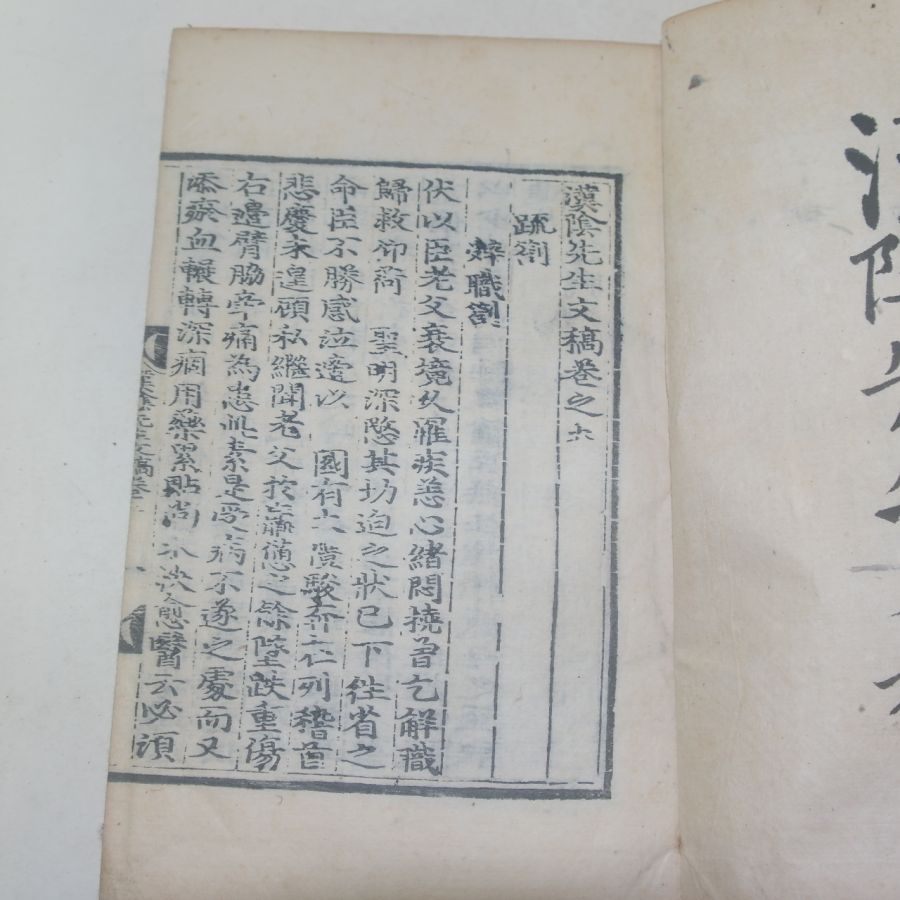 漢陰先生文稿卷之六
疏箚
辭職箚
伏以臣老父衰境久罹疾恙心緖悶撓曾乞解職
歸救仰荷 聖明深愍其切迫之狀已下往省之
命臣不勝感泣邊以 國有大慶駿奔之列稽首
悲慶未遑顧私繼聞老父於羸憊之餘墜跌重傷
右邊臂脇牽痛爲患此素是受病不遂之處而又
添瘀血輾轉深痼用藥累貼尙不決愈醫云必須
漢陰先生文稿卷